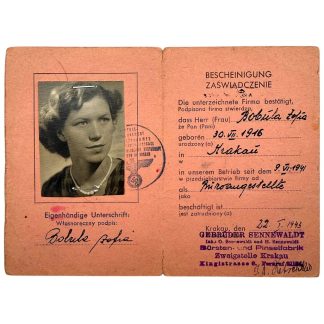 Eigenhändige Unterschrift:
Własnoręczny podpis:
Bobula Zofia
BESCHEINIGUNG
ZAŚWIADCZENIE
Die unterzeichnete Firma bestätigt,
Podpisana firma stwierdza,
dass Herr (Frau) Bobula Zofia
że Pan (Pani)
geboren 30. VII. 1916
urodzony (a)
in Krakau
w
in unserem Betrieb seit dem 9 VII 1941
w przedsiębiorstwie firmy od
als Büroangestellte
jako
beschäftigt ist.
jest zatrudniony (a)
Krakau, den 22 I. 1943
GEBRÜDER SENNEWALDT
Inh.: O. Sennewaldt und H. Sennewaldt
Bürsten- und Pinselfabrik
Zweigstelle Krakau